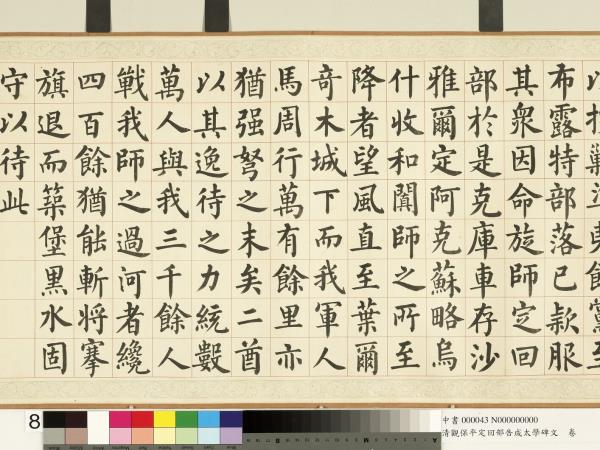 布露特部落已款服
其衆因命旋師定回
部於是克庫車存沙
雅爾定阿克蘇略烏
什收和闐師之所至
降者望風直至葉爾
奇木城下而我軍人
馬周行萬有餘里亦
猶强弩之末矣二酋
以其逸待之力統數
萬人與我三千餘人
戰我師之過河者纔
四百餘猶能斬將搴
旗退而築堡黑水固
守以待此
8
中書 000043 N000000000
清觀保平定回部告成太學碑文 卷